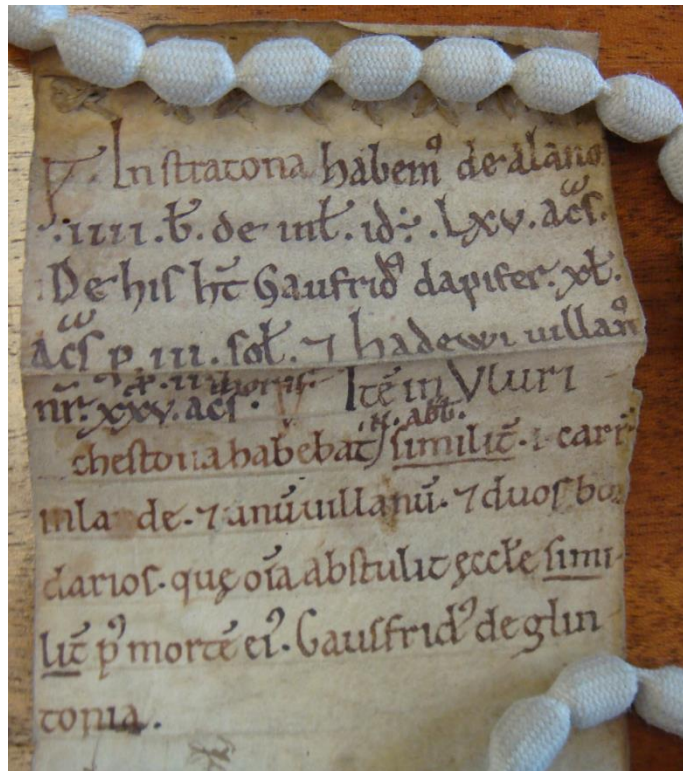 In stratona habem⁹ de alano
.iiii. b̃. de inł. id÷. lxv. ac̃s.
De his ht̃ Gaufrid⁹ dapifer. xł.
ac̃s p iii. soł. ⁊ hadewi uillan⁹
nr̃. xxv. ac̃s. Itẽ in Vluri
chestona habebat similit̃. i. carr̃
inla de. ⁊ unũ uillanũ. ⁊ duos bor
darios. quę oĩa abstulit ęccłe simi
lit̃ p⁹ mortẽ ei⁹. Gausfrid⁹ de glin
tonia.